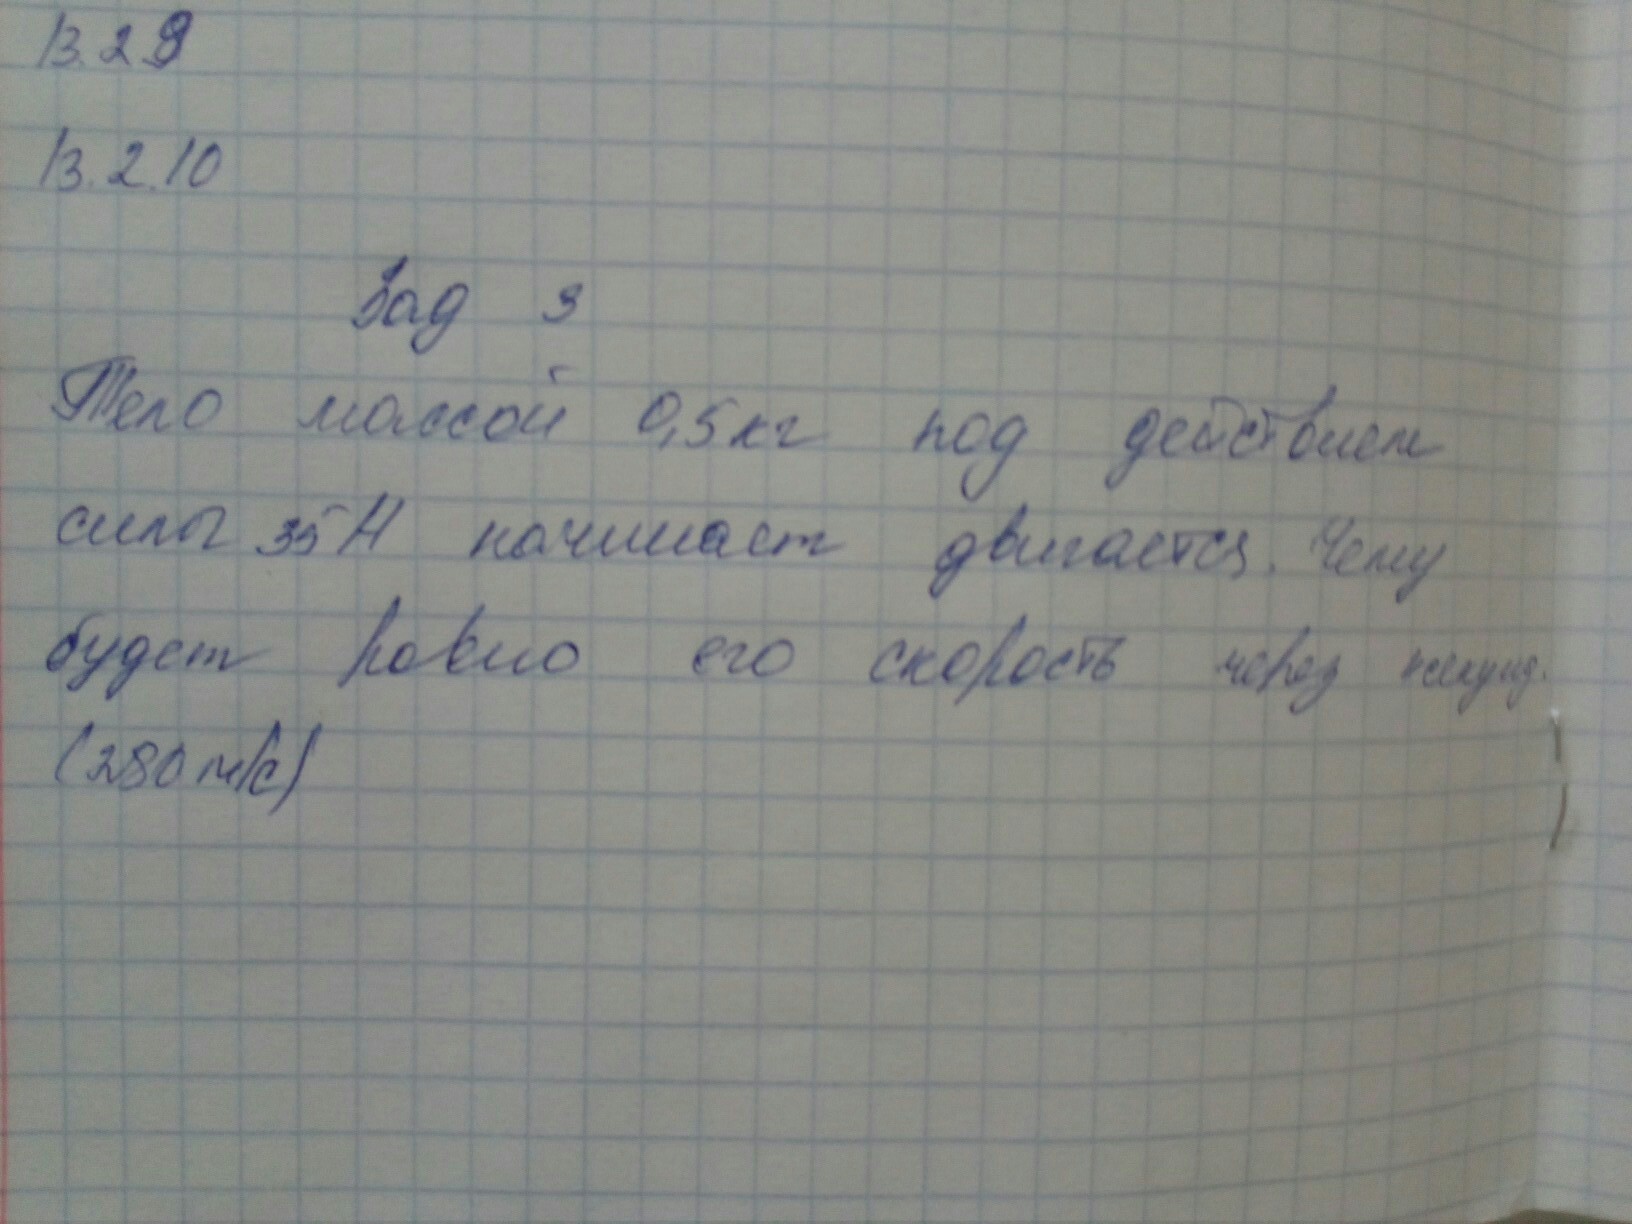 13.29
13.2.10
Зад 3
Тело массой 0,5 кг под действием
силы 35 Н начинает двигается. Чему
будет равно его скорость через секунд.
(280 м/с)